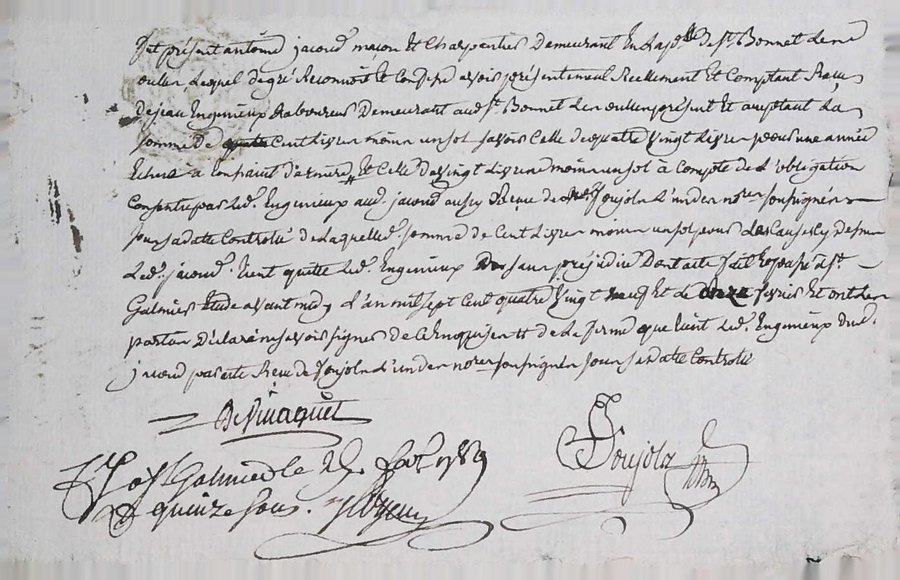 fut présent antoine jacoud maçon et Charpentier Demeurant En la p.lle De St. Bonnet Les
oulles, Lequel de gré Reconnoit et Confesse avoir présentement Réellement Et Comptant Reçu
De jean Enginieux Laboureur Demeurant aud. St. Bonnet Les oulles présent Et acceptant La
somme De Cent Livres moins un sol savoir Celle de quatre Vingt Livres pour une année
Echue à Et Celle De Vingt Livres moins un sol à Compte de L'obligation
Consentie par Led. Enginieux aud. jacoud aussy Reçue de Me. Soujols L'un des nores. soussignés
jour sa date Controllé De Laquelle d. somme de Cent Livres moins un sol pour Les Causes Cy dessus
Led. jacoud. tient quitte Led. Enginieux sans préjudice Dont acte fait Et passé à St.
Galmier Etude avant midy L'an mil sept Cent quatre Vingt neuf Et Le onze fevrier Et ont Les
parties Déclaré ne savoir signer de Ce Enquis et de La ferme que tient Led. Enginieux Dud.
jacoud par acte Reçu de Soujols L'un des nores. soussignés jour sa date Controllé
Soujols
Galmier le 1789
quinze sous.